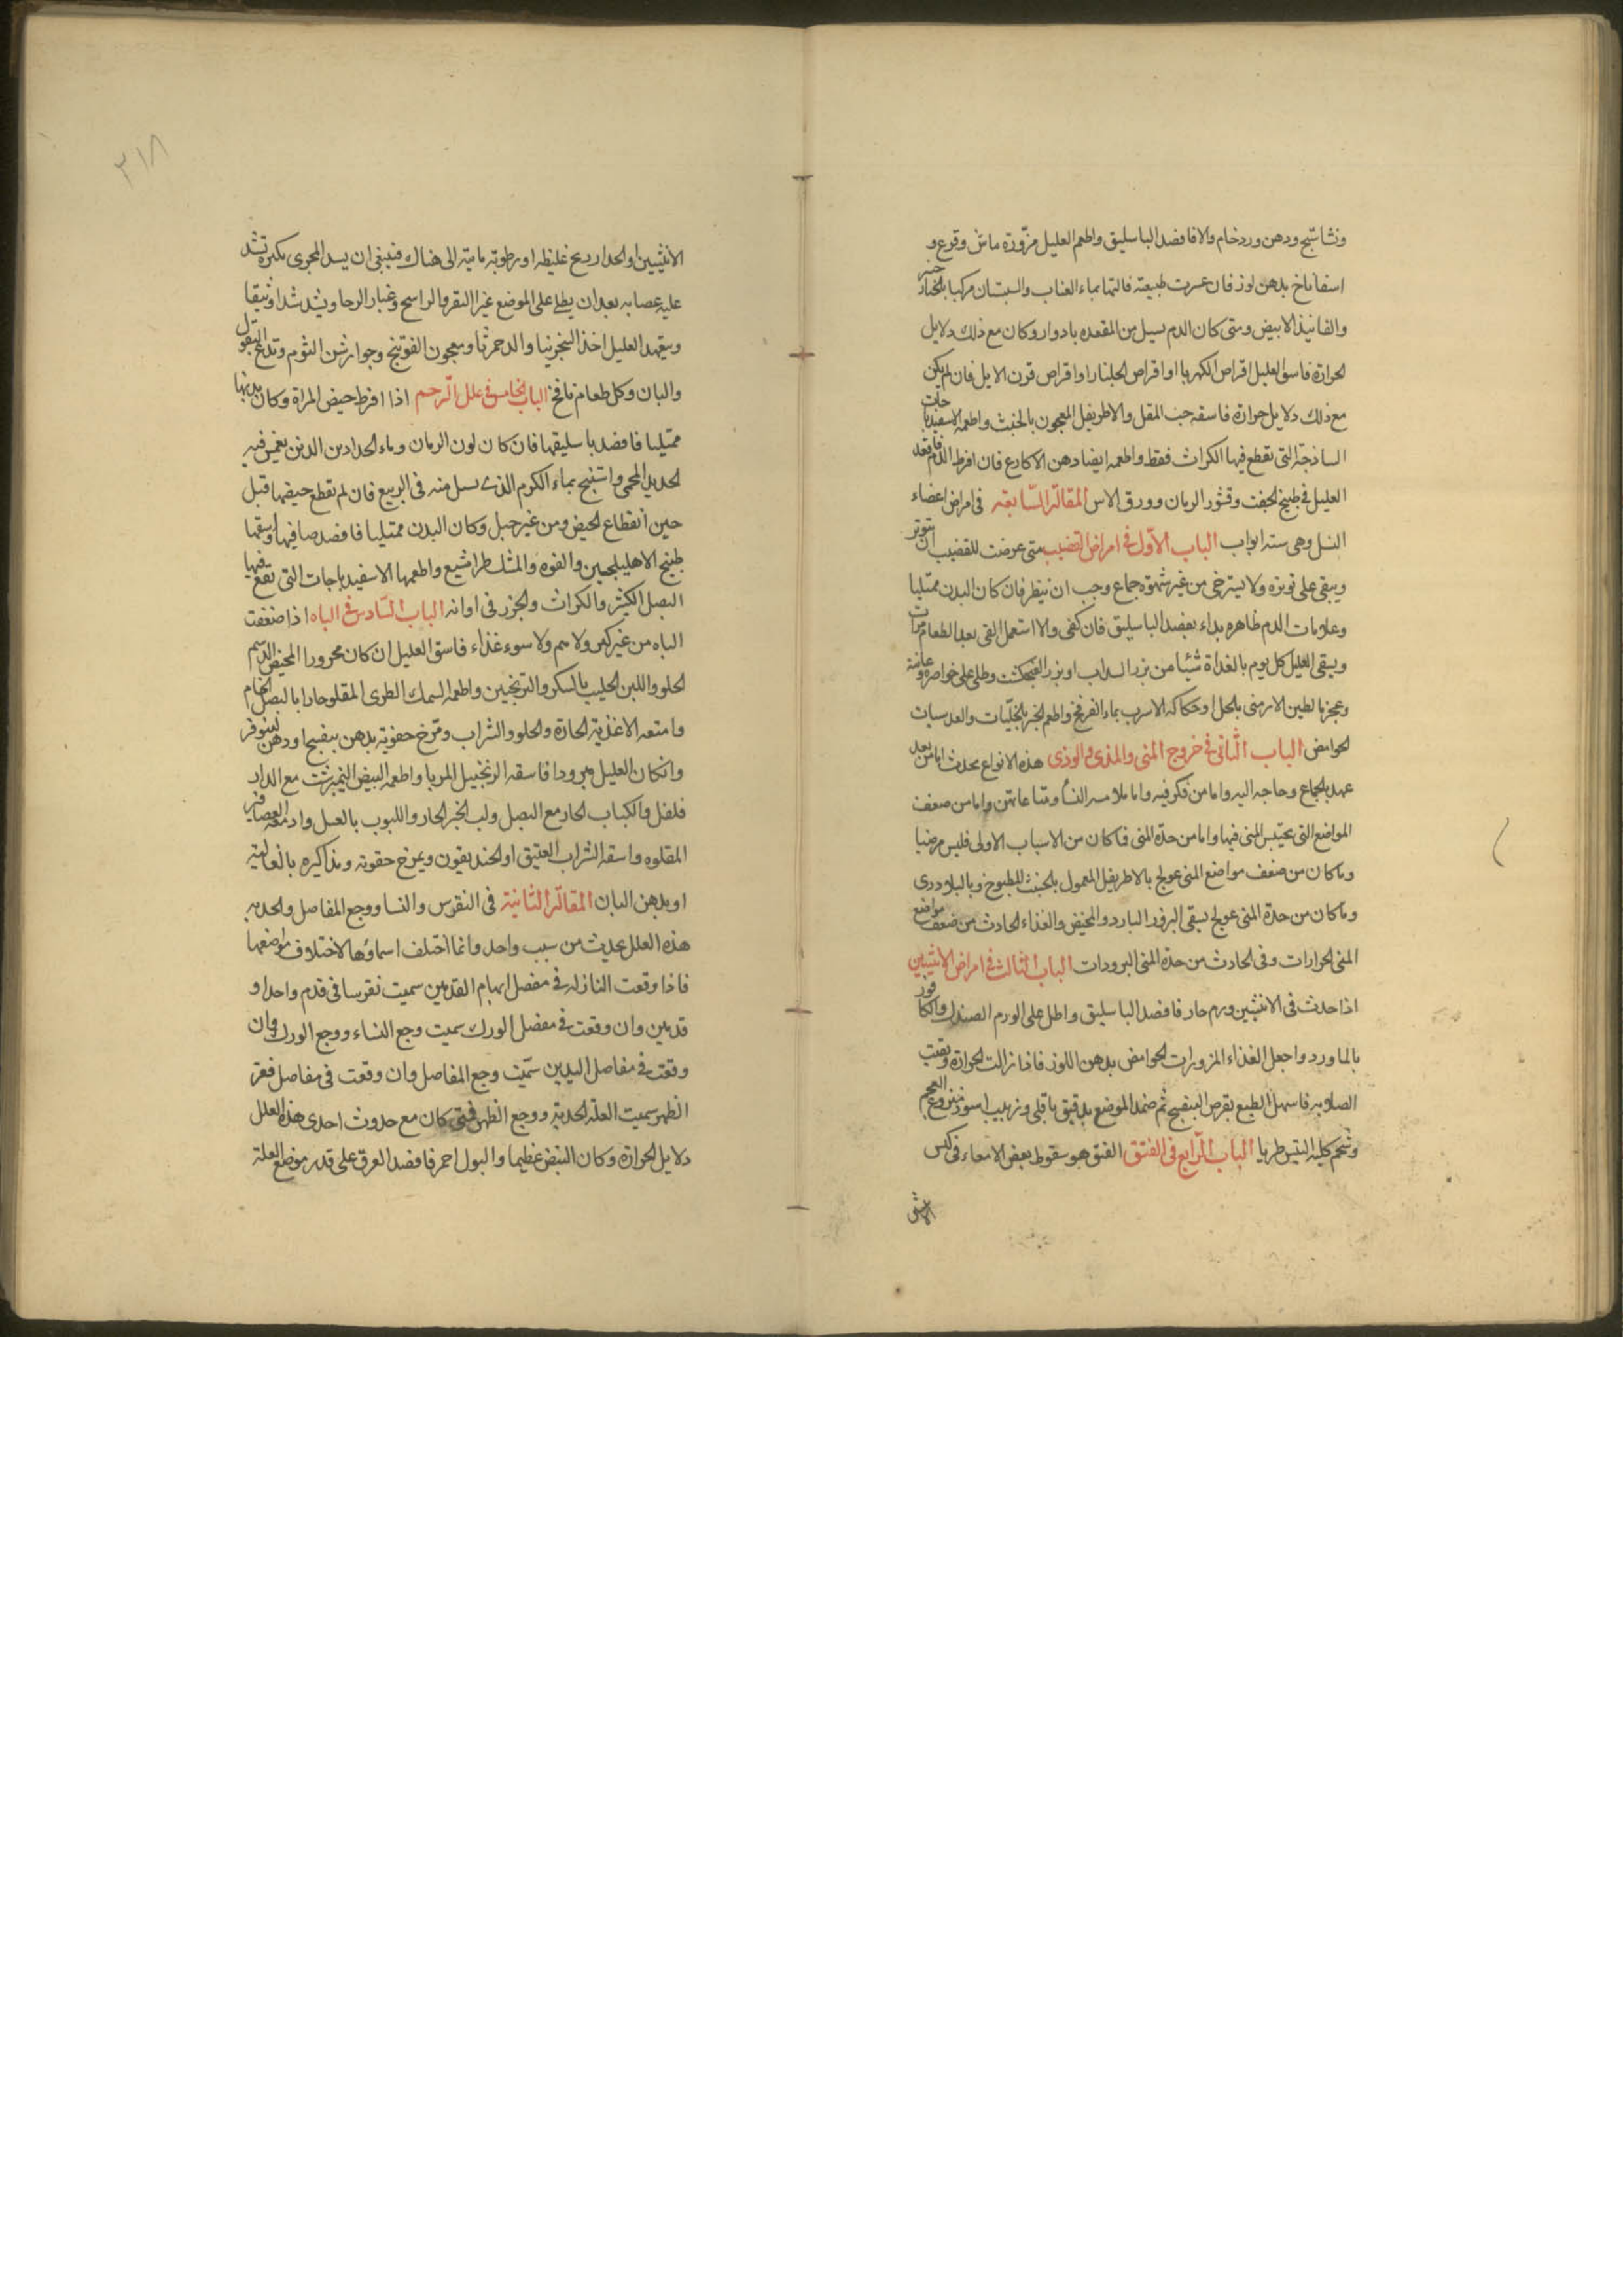 ونشاستج ودهن ورد خام والا فافصد الباسليق واطعم العليل مزورة ماش وقرع و
اسفاناخ بدهن لوز فان عسرت طبيعته فالتها بماء العناب والسبستان مركبا بالخيار
والفانيذ الابيض ومتى كان الدم يسيل من المقعده بادوار وكان مع ذلك دلايل
الحرارة فاسق العليل اقراص الكهربا او اقراص الجلنار او اقراص قرون الايل فان لم يكن
مع ذلك دلايل حرارة فاسقه حب المقل والاطريفل المعجون بالخبث واطعمه الاسفيدباجات
الساذجة التى تقطع فيها الكراث فقط واطعمه ايضا دهن الاكارع فان افرط الدم فاقعد
العليل فى طبيخ الجفت وقشور الرمان وورق الاس المقالة السابعة فى امراض اعضاء
النسل وهى ستة ابواب الباب الاول فى امراض القضيب متى عرضت للقضيب ان يتوتر
ويبقى على توتره ولا يسترخى من غير شهوة جماع وجب ان ينظر فان كان البدن ممتليا
وعلامات الدم ظاهره بداء بفصد الباسليق فان كفى والا استعمل القى بعد الطعام مرات
ويسقى العليل كل يوم بالغداة شيئا من بزر السداب او بزر الفنجنكشت وطلى على خواصره وعانته
وعجزه بالطين الارمنى بالخل او حكاكه الاسرب بماء الفرفخ واطعم الخبز بالخليات والعدسيات
الحوامض الباب الثانى فى خروج المنى والمذى والوذى هذه الانواع تحدث اما من بعد
عهد بالجماع وحاجه اليه واما من فكر فيه واما ملامسه النسا ومتاعبتهن واما من ضعف
المواضع التى يحتبس المنى فيها واما من حدة المنى فما كان من الاسباب الاولى فليس مرضيا
وما كان من ضعف مواضع المنى عولج بالاطريفل المعمول بالخبث المطبوخ وبالبلادرى
وما كان من حدة المنى عولج بسقى البزور البارد والمخيض والغذاء الحادث من ضعف مواضع
المنى الحرارات وفى الحادث من حدة المنى البرودات الباب الثالث فى امراض الانثيين
اذا حدث فى الانثيين ورم حار فافصد الباسليق واطل على الورم الصندل والكافور
بالماورد واجعل الغذاء المزورات الحوامض بدهن اللوز فاذا زالت الحرارة وبقيت
الصلابه فاسهل الطبع بقرص البنفسج ثم ضمد الموضع بدقيق باقلى وزبيب اسود منزوع العجم
وشحم كلية التيس طريا الباب الرابع فى الفتق الفتق هو سقوط بعض الامعاء فى كيس
الانثى
٢١٨
الانثيين او انحدار ريح غليظه او رطوبة مائية الى هناك فينبغى ان يسد المجرى بكرة تشد
عليه عصابه بعد ان يطلى على الموضع غرا البقر والراسخ وغبار الرحا ويشد شدا وثيقا
ويتعهد العليل اخذ السنجرنيا والدحمرثا ومعجون الفوتنج وجوارشن الثوم وتدع البقول
والبان وكل طعام نافخ الباب الخامس فى علل الرحم اذا افرط حيض المراة وكان بدنها
ممتليا فافصد باسليقها فان كان لون الرمان وماء الحدادين الذين يغمس فيه
الحديد المحمى واستنج بماء الكرم الذى يسل منه فى الربيع فان لم تقطع حيضها قبل
حين انقطاع الحيض ومن غير حبل وكان البدن ممتليا فافصد صافيها واسقها
طبيخ الاهليلجين والفوه والمشكطرامشيع واطعمها الاسفيدباجات التى تقع فيها
البصل الكثير والكراث والجزر فى اوانه الباب السادس فى الباه اذا ضعفت
الباه من غير كبر ولا هم ولا سوء غذاء فاسق العليل ان كان محرورا المخيض الدسم
الحلو واللبن الحليب بالسكر والترنجبين واطعمه السمك الطرى المقلو حارا بالبصل الخام
وامنعه الاغذية الحارة والحلو والشراب ومرخ حقويه بدهن بنفسج او دهن لينوفر
وان كان العليل مبرودا فاسقه الزنجبيل المربا واطعمه البيض النيمبرشت مع الدار
فلفل والكباب الحار مع البصل ولب الخبز الحار واللبوب بالعسل وادمغه العصافير
المقلوه واسقه الشراب العتيق او الخنديقون ويمرخ حقويه ومذاكيره بالغالية
او بدهن البان المقالة الثانية فى النقرس والنسا ووجع المفاصل والحدبه
هذه العلل تحدث من سبب واحد وانما اختلف اسماؤها لاختلاف مواضعها
فاذا وقعت النازله فى مفصل ابهام القدمين سميت نقرسا فى قدم واحد او
قدمين وان وقعت فى مفصل الورك سميت وجع النساء ووجع الورك وان
وقعت فى مفاصل اليدين سميت وجع المفاصل وان وقعت فى مفاصل فقر
الظهر سميت العلة الحدبة ووجع الظهر فمتى كان مع حدوث احدى هذه العلل
دلايل الحرارة وكان النبض عظيما والبول احمر فافصد العرق على قدر موضع العلة